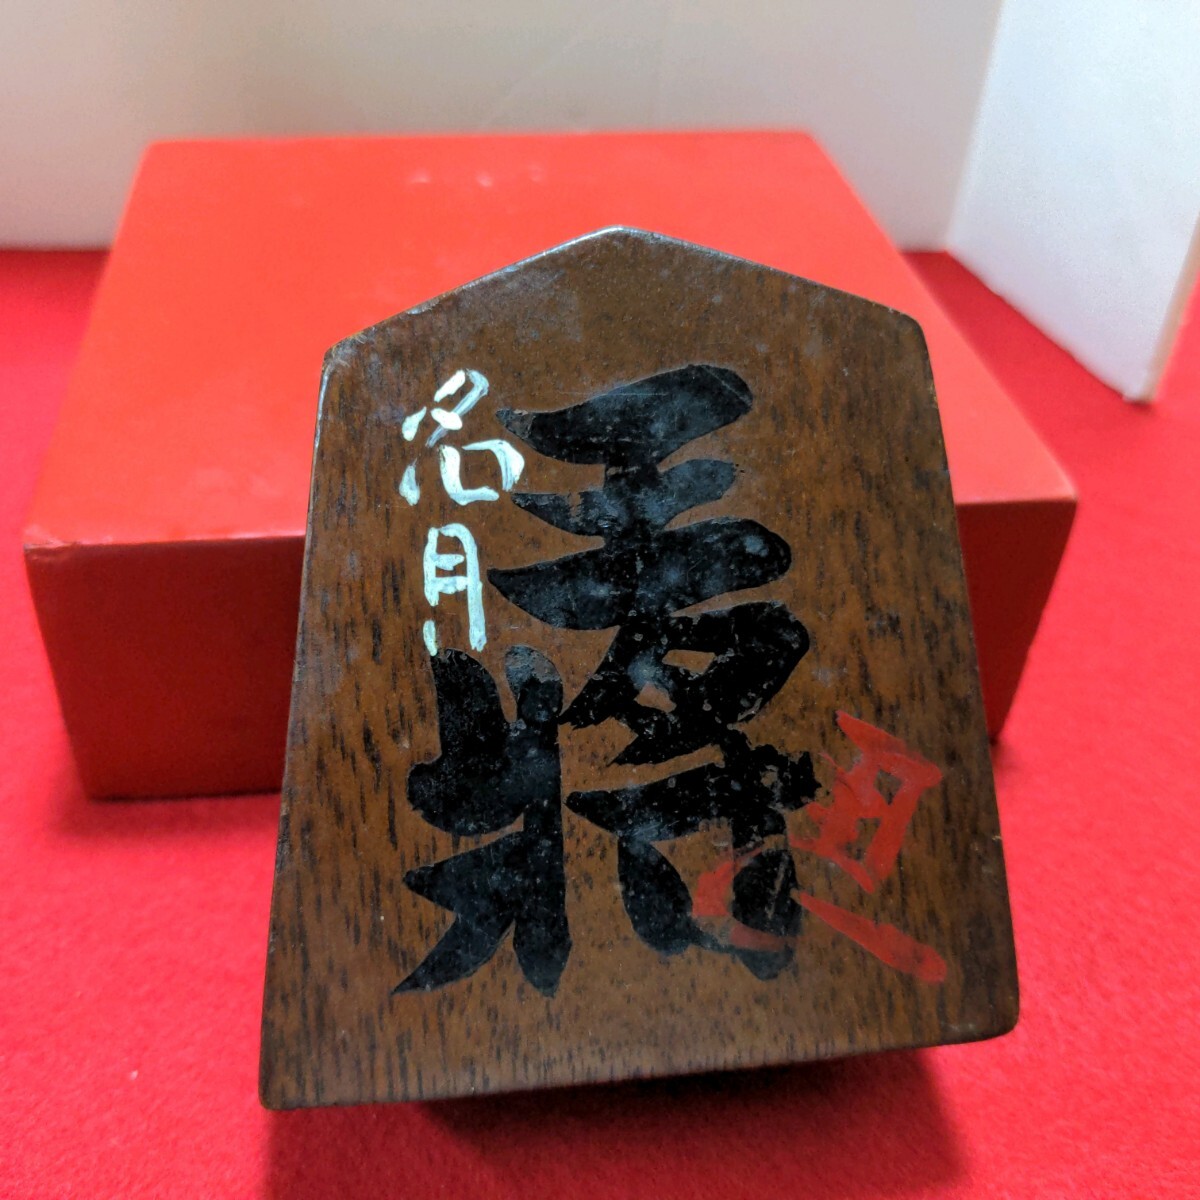 王将
名月